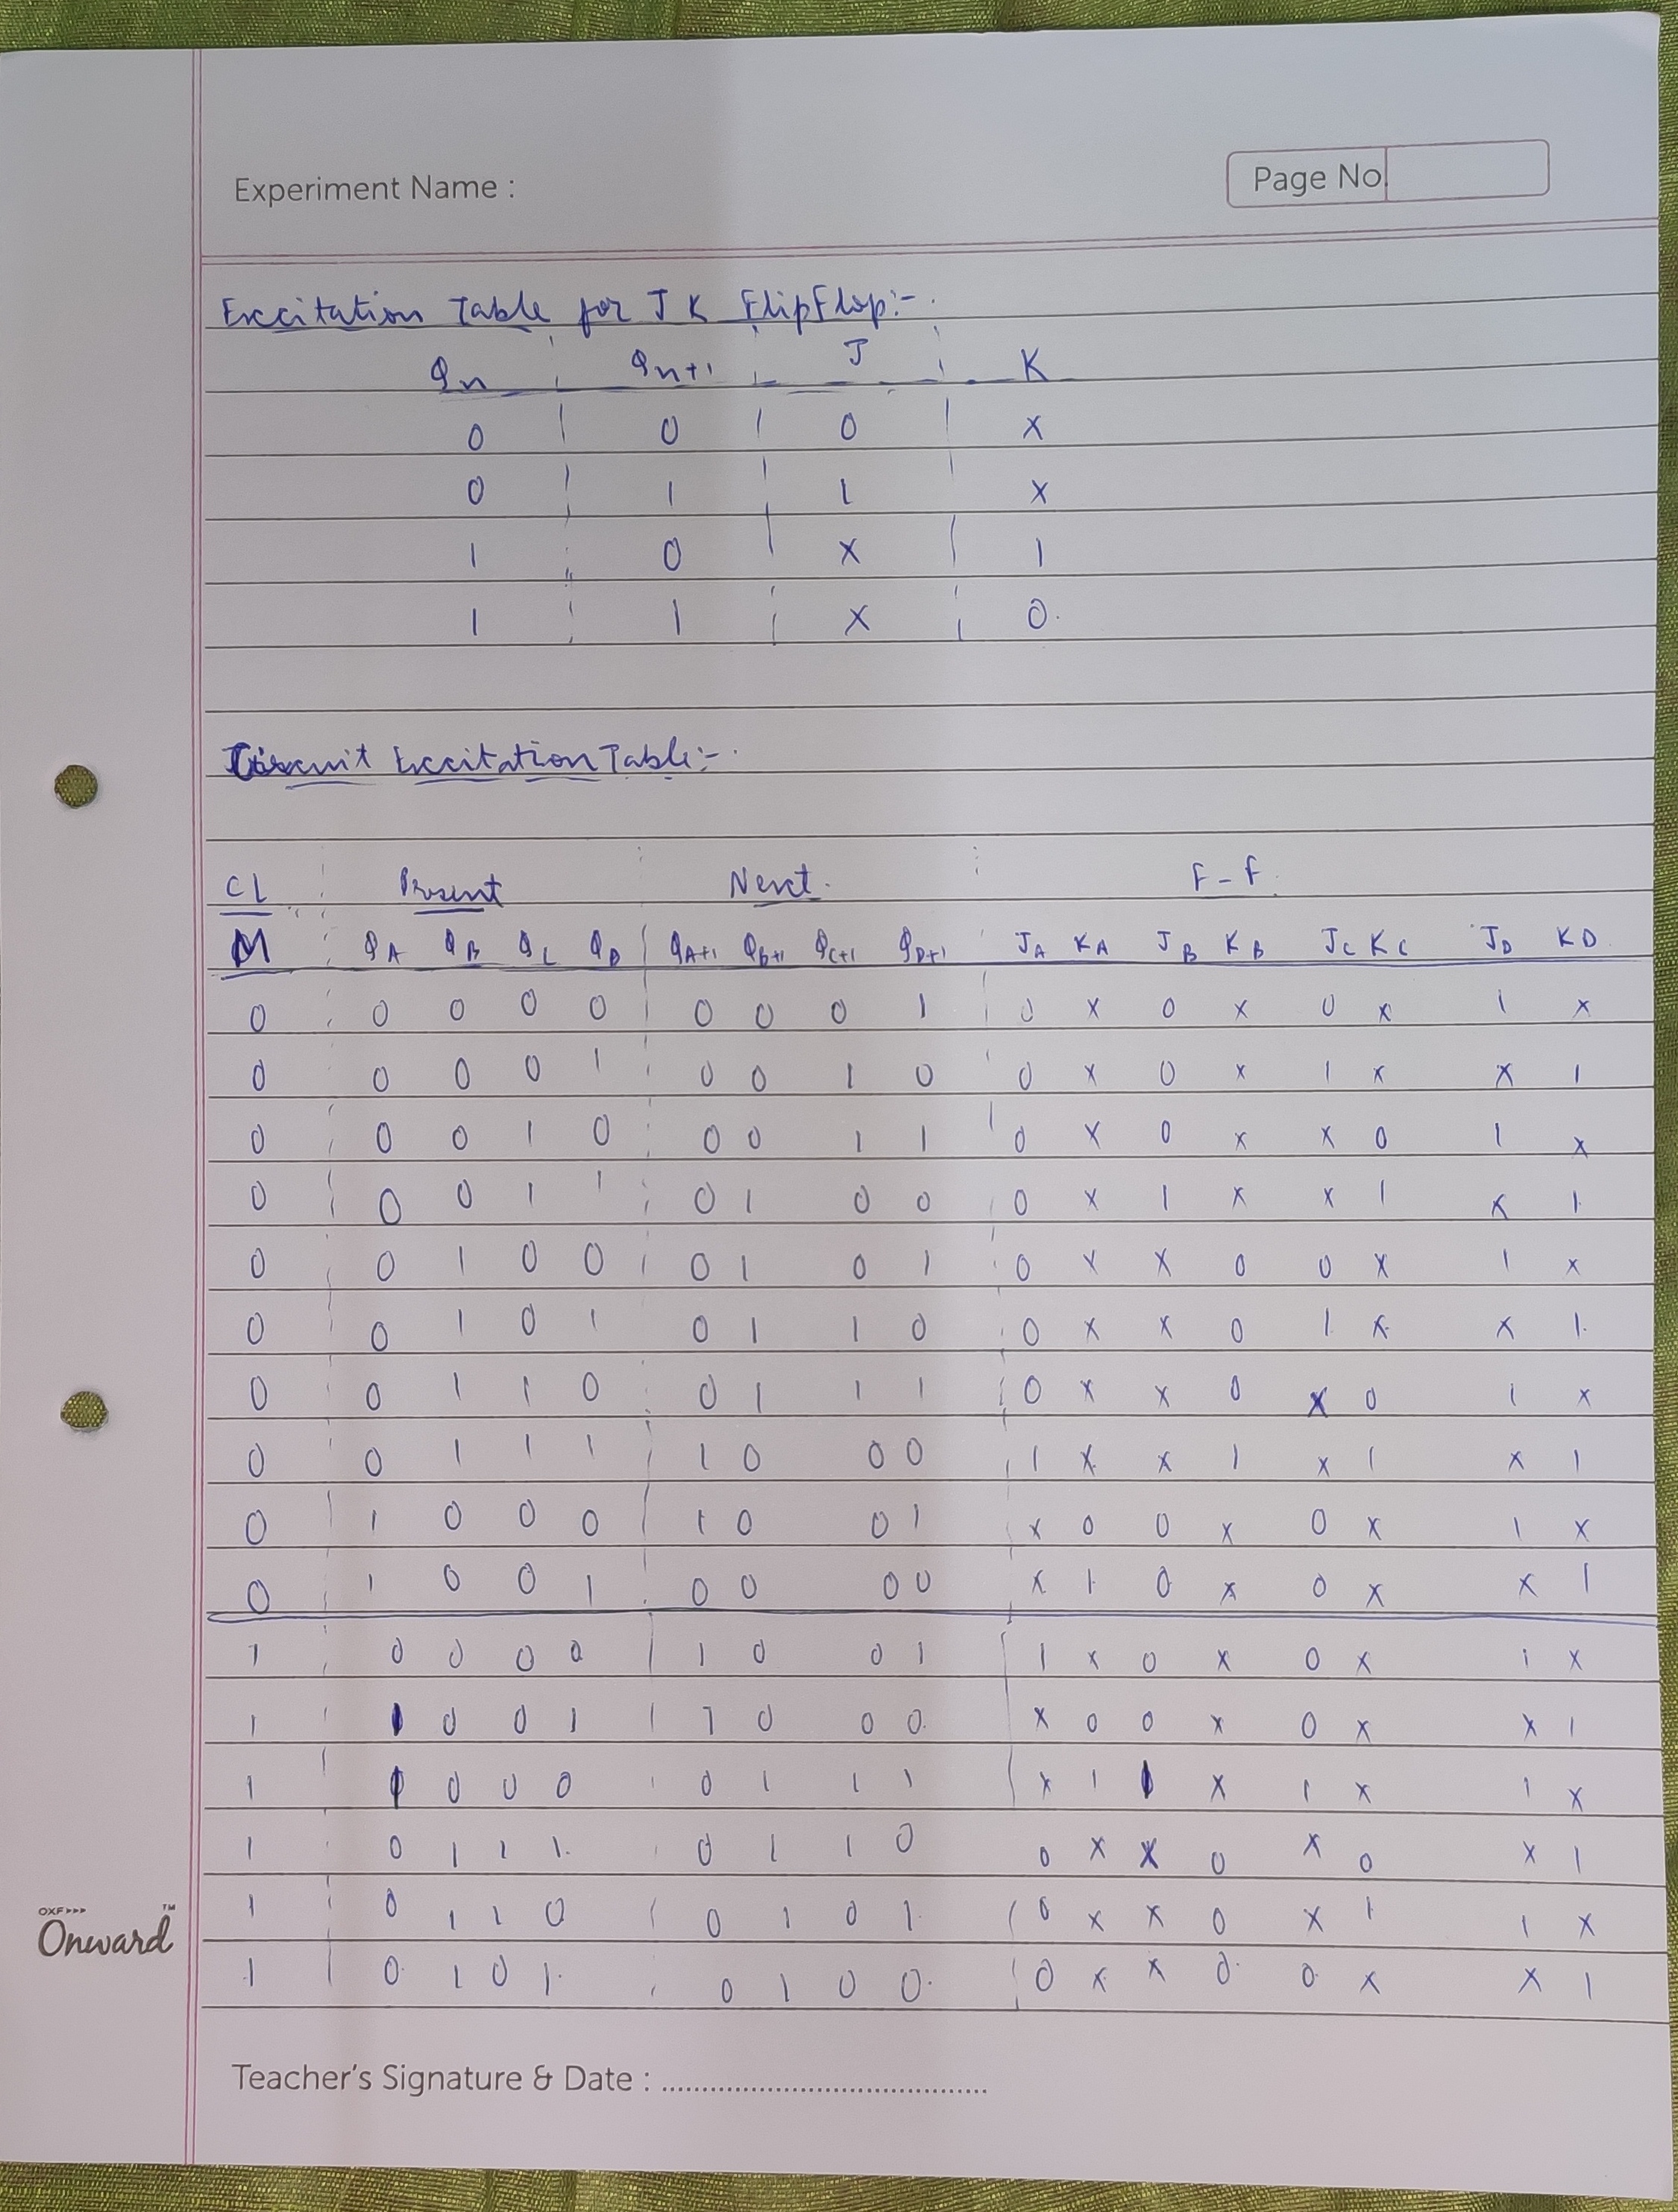 Experiment Name :
Page No
Excitation Table for J K FlipFlop:-.
Qn Qn+1 J K
0 0 0 x
0 1 1 x
1 0 x 1
1 1 x 0.
Circuit Excitation Table:-.
CL Present Next. F-F.
M QA QB QC QD QA+1 QB+1 QC+1 QD+1 JA KA JB KB JC KC JD KD
0 0 0 0 0 0 0 0 1 0 x 0 x 0 x 1 x
0 0 0 0 1 0 0 1 0 0 x 0 x 1 x x 1
0 0 0 1 0 0 0 1 1 0 x 0 x x 0 1 x
0 0 0 1 1 0 1 0 0 0 x 1 x x 1 x 1
0 0 1 0 0 0 1 0 1 0 x x 0 0 x 1 x
0 0 1 0 1 0 1 1 0 0 x x 0 1 x x 1
0 0 1 1 0 0 1 1 1 0 x x 0 x 0 1 x
0 0 1 1 1 1 0 0 0 1 x x 1 x 1 x 1
0 1 0 0 0 1 0 0 1 x 0 0 x 0 x 1 x
0 1 0 0 1 0 0 0 0 x 1 0 x 0 x x 1
1 0 0 0 0 1 0 0 1 1 x 0 x 0 x 1 x
1 1 0 0 1 1 0 0 0. x 0 0 x 0 x x 1
1 1 0 0 0 0 1 1 1 x 1 1 x 1 x 1 x
1 0 1 1 1. 0 1 1 0 0 x x 0 x 0 x 1
1 0 1 1 0 0 1 0 1. 0 x x 0 x 1 1 x
1 0 1 0 1. 0 1 0 0. 0 x x 0. 0. x x 1
OXF>>> TM
Onward
Teacher's Signature & Date : ........................................